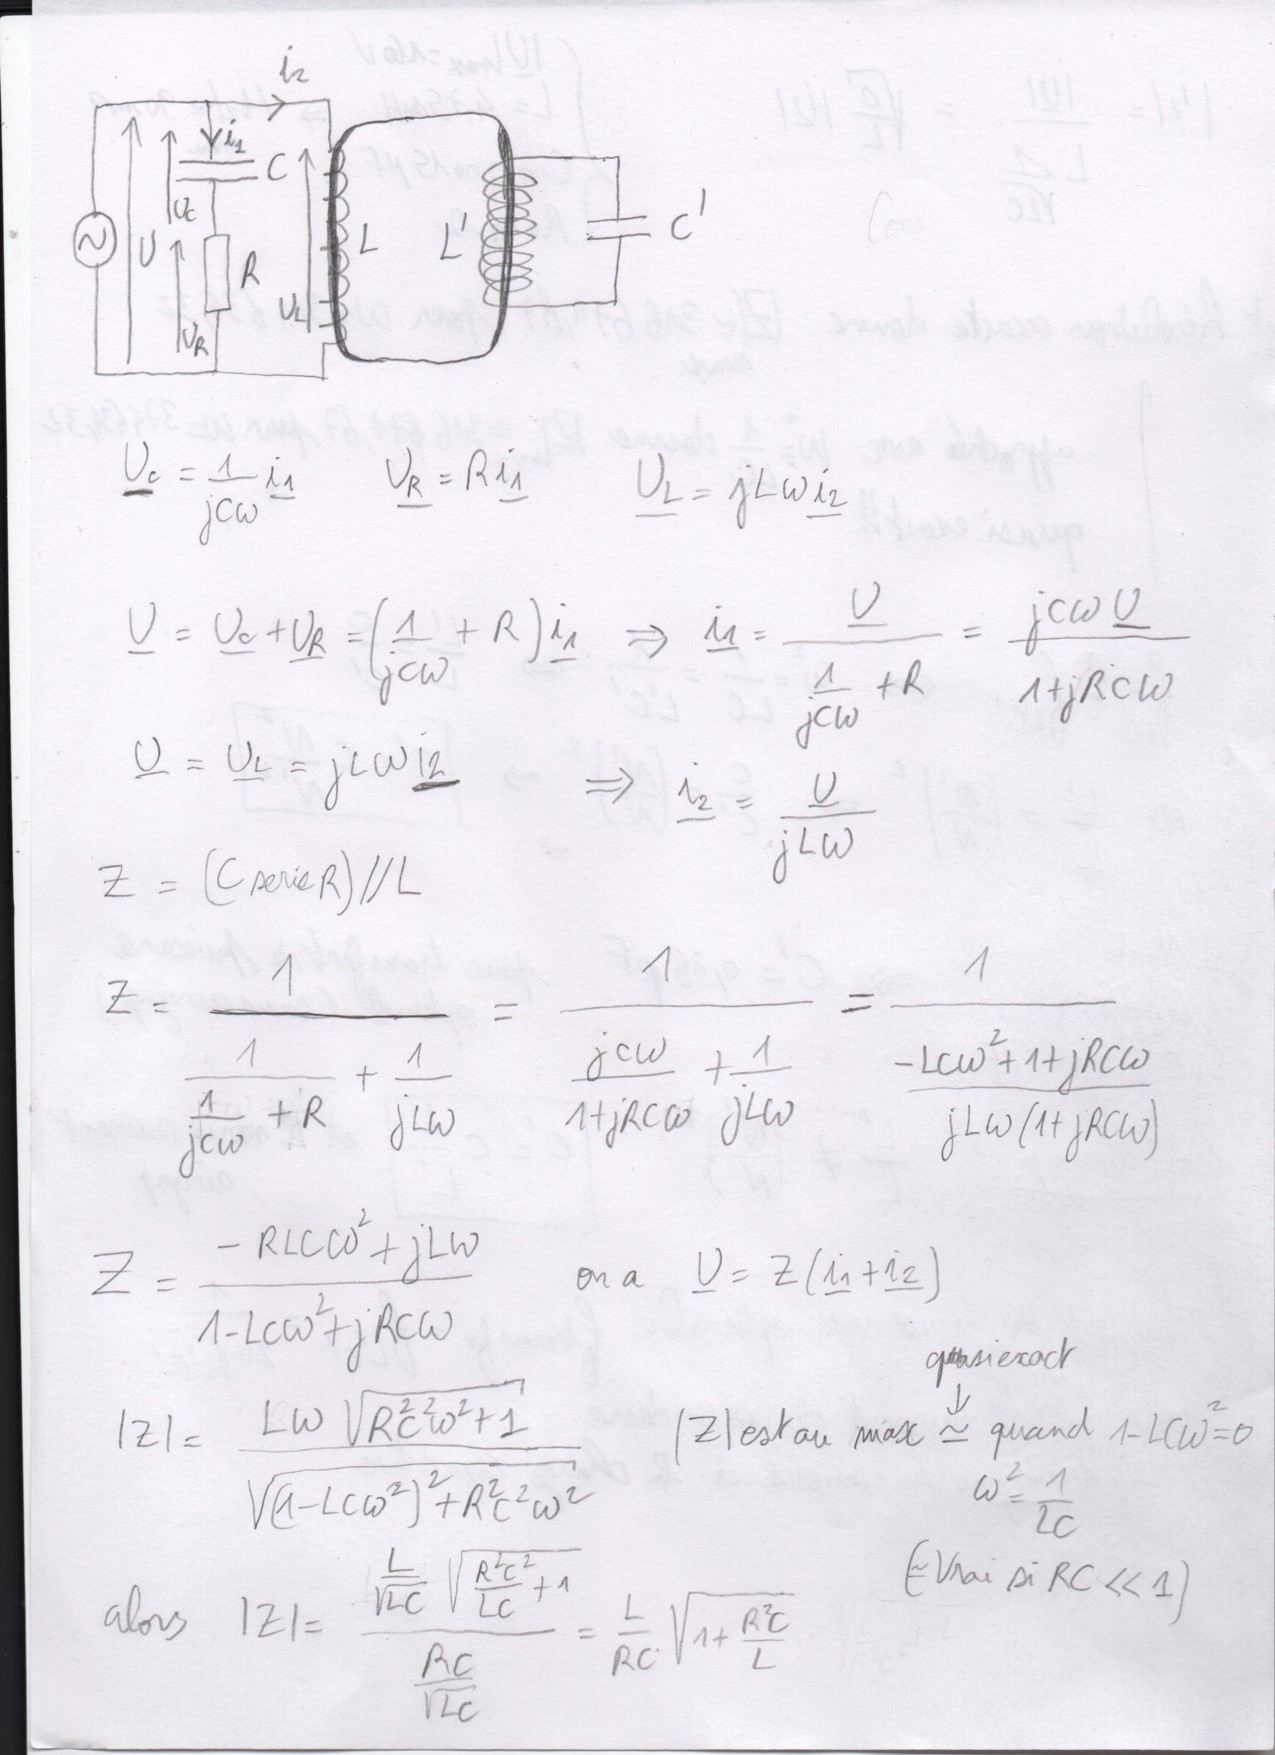 i2
i1
C
Uc
U
R
UR
UL
L
L'
C'
Uc = 1/jCω i1   UR = R i1   UL = jLω i2
U = Uc + UR = (1/jCω + R) i1 ⇒ i1 = U/(1/jCω + R) = jCωU/(1+jRCω)
U = UL = jLω i2 ⇒ i2 = U/jLω
Z = (C serie R) // L
Z = 1/(1/(1/jCω + R) + 1/jLω) = 1/(jCω/(1+jRCω) + 1/jLω) = 1/((-LCω²+1+jRCω)/(jLω(1+jRCω)))
Z = (-RLCω²+jLω)/(1-LCω²+jRCω)   on a U = Z(i1+i2)
quasi exact
↓
|Z| = Lω√(R²C²ω²+1)/√((1-LCω²)²+R²C²ω²)   |Z| est au max ≃ quand 1-LCω²=0
ω² = 1/LC
(≃ Vrai si RC << 1)
alors |Z| = (L/√LC √(R²C²/LC + 1))/(RC/√LC) = L/RC √(1+R²C/L)